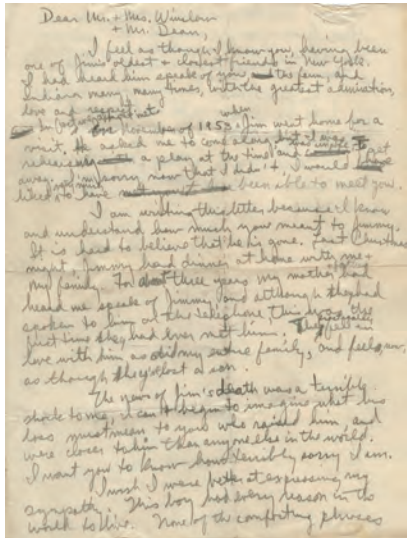 Dear Mr. + Mrs. Winslow
+ Mr. Dean,
I feel as though I know you, having been
one of Jim's oldest + closest friends in New York.
I had heard him speak of you, the farm, and
Indiana many, many times, with the greatest admiration,
love and respect.
In November of 1953 when Jim went home for a
visit, He asked me to come along, but I was
rehearsing a play at the time and was unable to get
away. I'm sorry now that I didn't. I would
liked to have been able to meet you.
I am writing this letter because I know
and understand how much you meant to Jimmy.
It is hard to believe that he is gone. Last Christmas
night, Jimmy had dinner at home with me +
my family. For about three years my mother had
heard me speak of Jimmy and although they had
spoken to him on the telephone this was the
first time they had ever met him. They fell in
love with him as did my entire family, and feel, now,
as though they'd lost a son.
The news of Jim's death was a terrific
shock to me, I can't begin to imagine what his
loss must mean to you who raised him, and
were closer to him than anyone else in the world.
I want you to know how terribly sorry I am.
I wish I were better at expressing my
sympathy. This boy had every reason in the
world to live. None of the comforting phrases